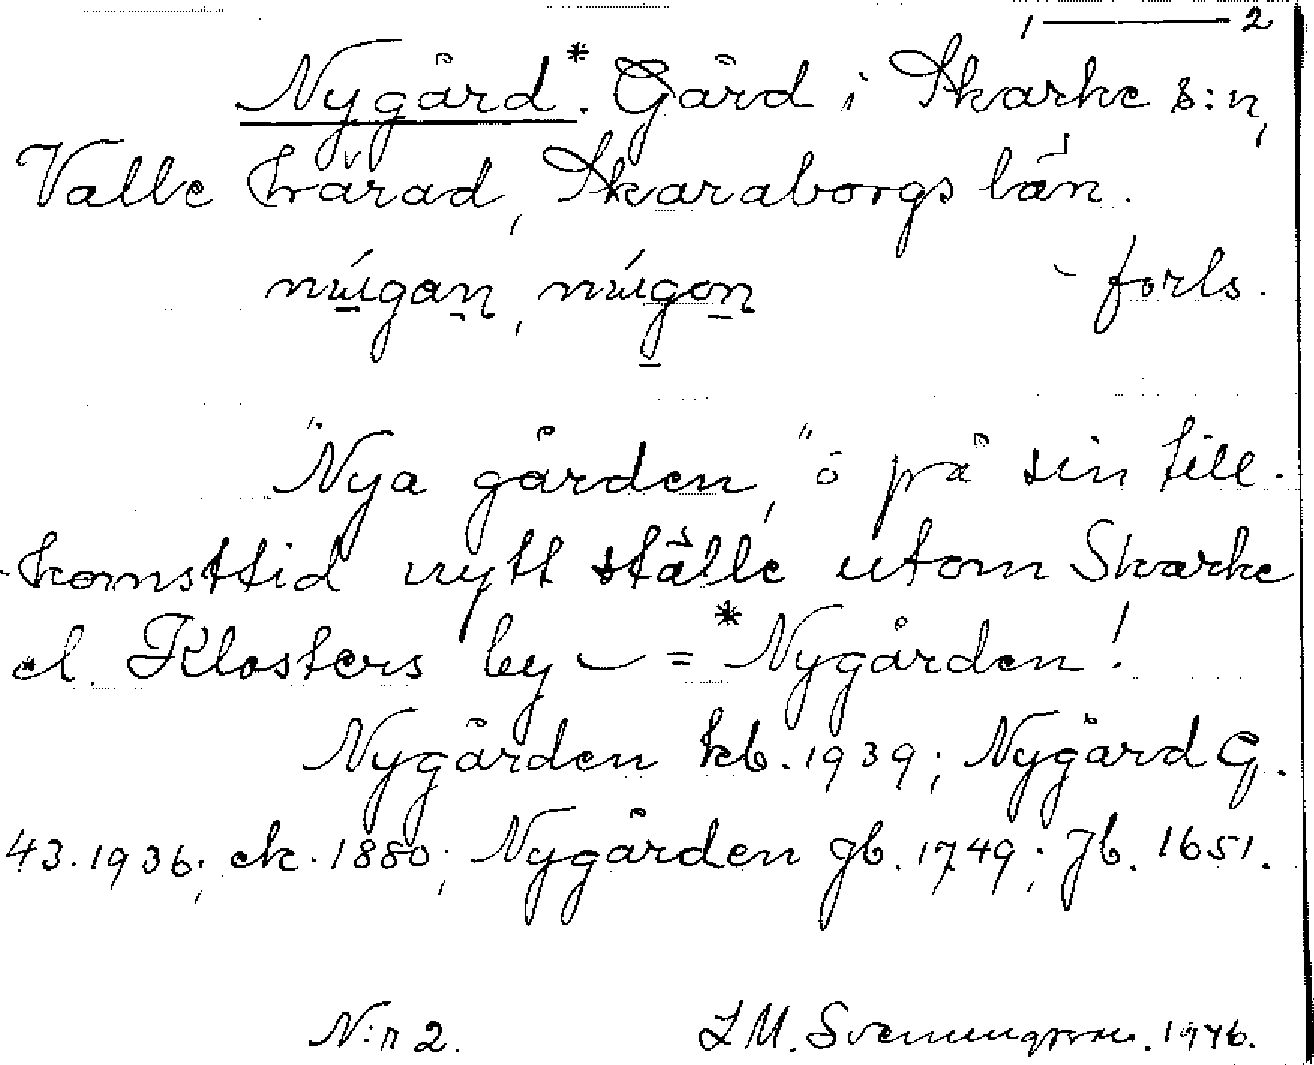 1 — 2
Nygård*. Gård i Skärke s:n,
Valle härad, Skaraborgs län.
forls.
"Nya gården," å på sin till-
komsttid nytt ställe utom Skärke
el. Klosters by – = *Nygården!
Nygården kb. 1939; Nygård G.
43. 1936; ek. 1880; Nygården gb. 1749; Jb. 1651.
N:r 2. L M. Svenungsson. 1946.